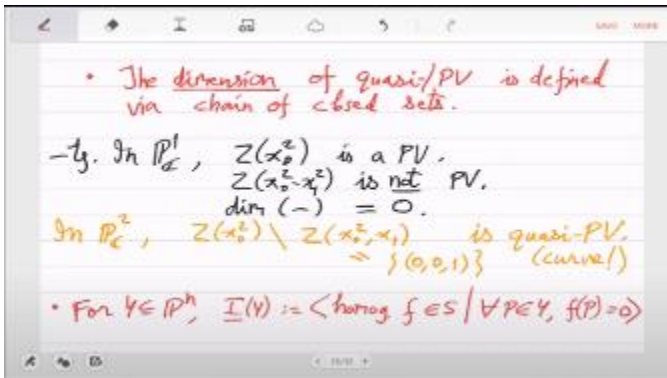 SAVE MORE
• The dimension of quasi-/PV is defined
via chain of closed sets.
-Eg. In ℙ¹_ℂ, Z(x₀²) is a PV.
Z(x₀²-x₁²) is not PV.
dim (-) = 0.
In ℙ_ℂ², Z(x₀²) \ Z(x₀², x₁) is quasi-PV.
= {(0,0,1)} (curve!)
• For Y⊆ℙⁿ, I(Y) := <homog f ∈ S | ∀P∈Y, f(P)=0>